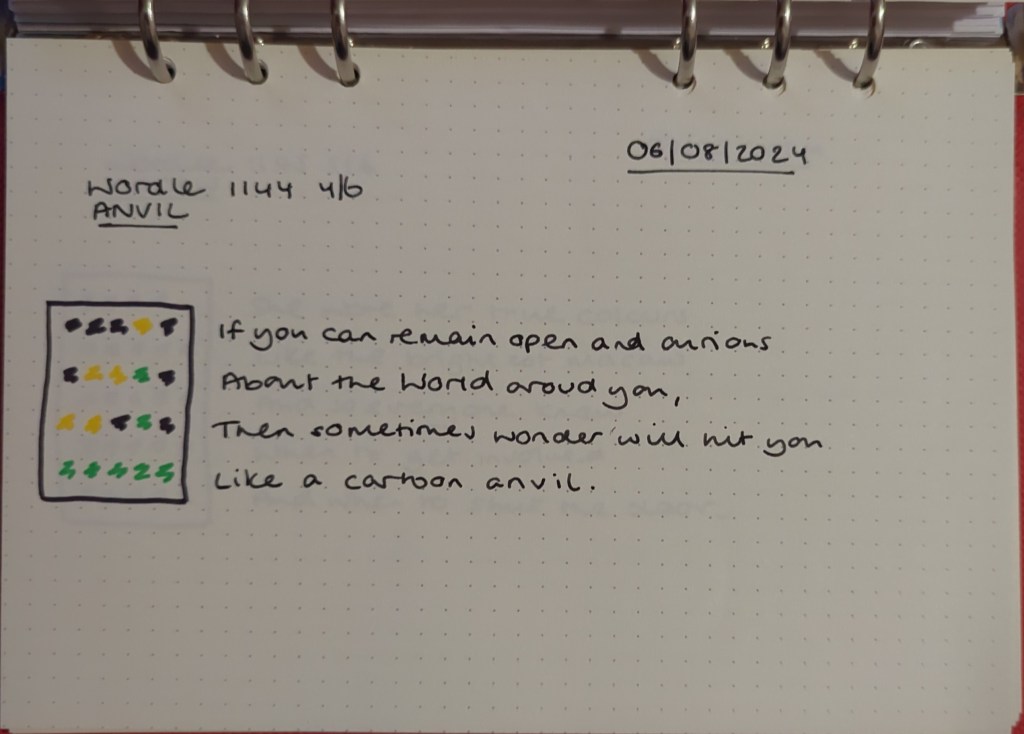 06/08/2024
Wordle 1144 4/6
ANVIL
If you can remain open and curious
About the world aroud you,
Then sometimes wonder will hit you
Like a cartoon anvil.